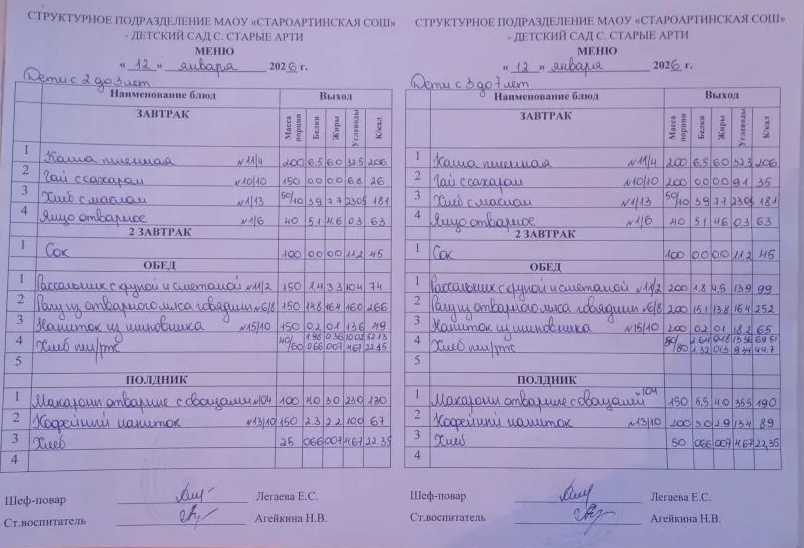 СТРУКТУРНОЕ ПОДРАЗДЕЛЕНИЕ МАОУ «СТАРОАРТИНСКАЯ СОШ»
- ДЕТСКИЙ САД С. СТАРЫЕ АРТИ
МЕНЮ
« 12 » января 2026 г.
Дети с 2 до 3 лет
Наименование блюд Выход
ЗАВТРАК Масса порции Белки Жиры Углеводы К/кал
1 Каша пшенная №11/4 200 6,5 6,0 32,5 206
2 Чай с сахаром №10/10 150 0,0 0,0 6,8 26
3 Хлеб с маслом №1/13 50/10 3,9 7,7 23,05 181
4 Яйцо отварное №1/6 40 5,1 4,6 0,3 63
2 ЗАВТРАК
1 Сок 100 0,0 0,0 11,2 45
ОБЕД
1 Рассольник с крупой и сметаной №11/2 150 1,4 3,3 10,4 74
2 Рагу из отварного мяса говядины №6/8 150 14,8 16,4 16,0 266
3 Напиток из шиповника №15/10 150 0,2 0,1 13,6 49
4 Хлеб пш/рж 40/60
5
ПОЛДНИК
1 Макароны отварные с овощами №104 100 4,0 3,0 23,0 130
2 Кофейный напиток №13/10 150 2,3 2,2 10,0 67
3 Хлеб 25 0,66 0,07 4,67 22,35
4
Шеф-повар Легаева Е.С.
Ст.воспитатель Агейкина Н.В.
СТРУКТУРНОЕ ПОДРАЗДЕЛЕНИЕ МАОУ «СТАРОАРТИНСКАЯ СОШ»
- ДЕТСКИЙ САД С. СТАРЫЕ АРТИ
МЕНЮ
« 12 » января 2026 г.
Дети с 3 до 7 лет
Наименование блюд Выход
ЗАВТРАК Масса порции Белки Жиры Углеводы К/кал
1 Каша пшенная №11/4 200 6,5 6,0 32,3 206
2 Чай с сахаром №10/10 200 0,0 0,0 9,1 35
3 Хлеб с маслом №1/13 50/10 3,9 7,7 23,05 181
4 Яйцо отварное №1/6 40 5,1 4,6 0,3 63
2 ЗАВТРАК
1 Сок 100 0,0 0,0 11,2 45
ОБЕД
1 Рассольник с крупой и сметаной №11/2 200 1,8 4,5 13,9 99
2 Рагу из отварного мяса говядины №6/8 200 15,1 13,8 16,4 252
3 Напиток из шиповника №15/10 200 0,2 0,1 18,2 65
4 Хлеб пш/рж
5
ПОЛДНИК
1 Макароны отварные с овощами 104 150 5,5 4,0 35,5 190
2 Кофейный напиток №13/10 200 3,0 2,9 13,4 89
3 Хлеб 50 0,66 0,07 4,67 22,35
4
Шеф-повар Легаева Е.С.
Ст.воспитатель Агейкина Н.В.